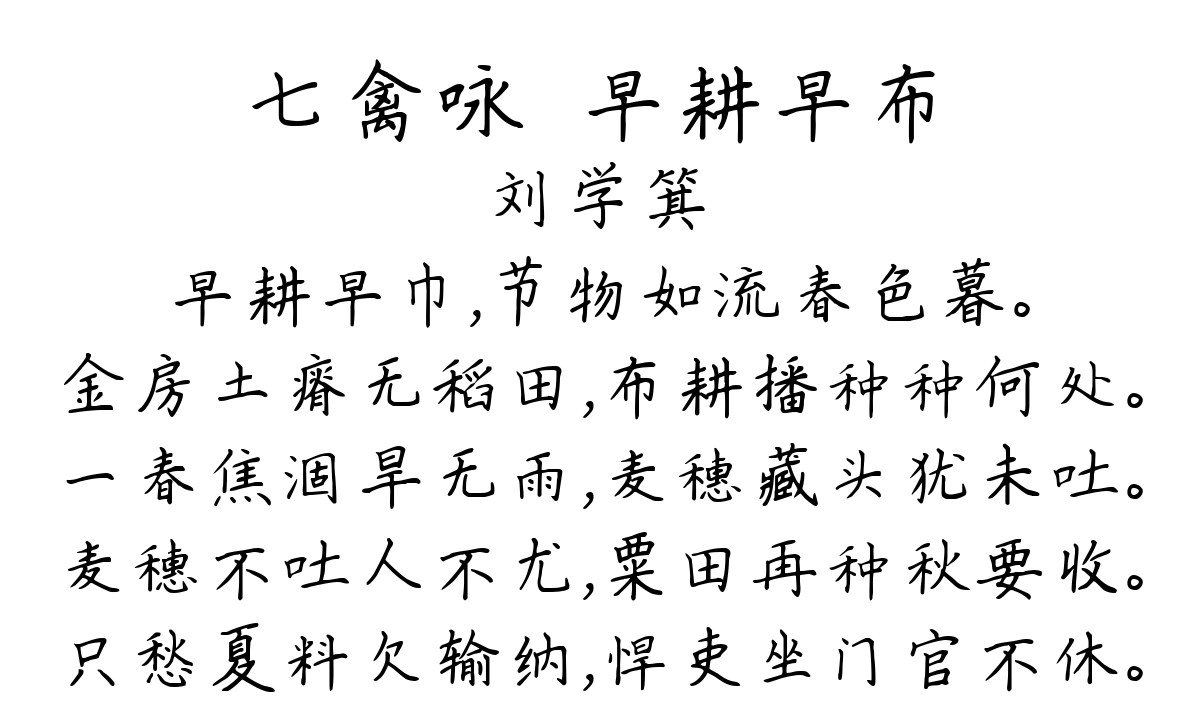 七禽咏 早耕早布
刘学箕
早耕早巾,节物如流春色暮。
金房土瘠无稻田,布耕播种种何处。
一春焦涸旱无雨,麦穗藏头犹未吐。
麦穗不吐人不尤,粟田再种秋要收。
只愁夏料欠输纳,悍吏坐门官不休。